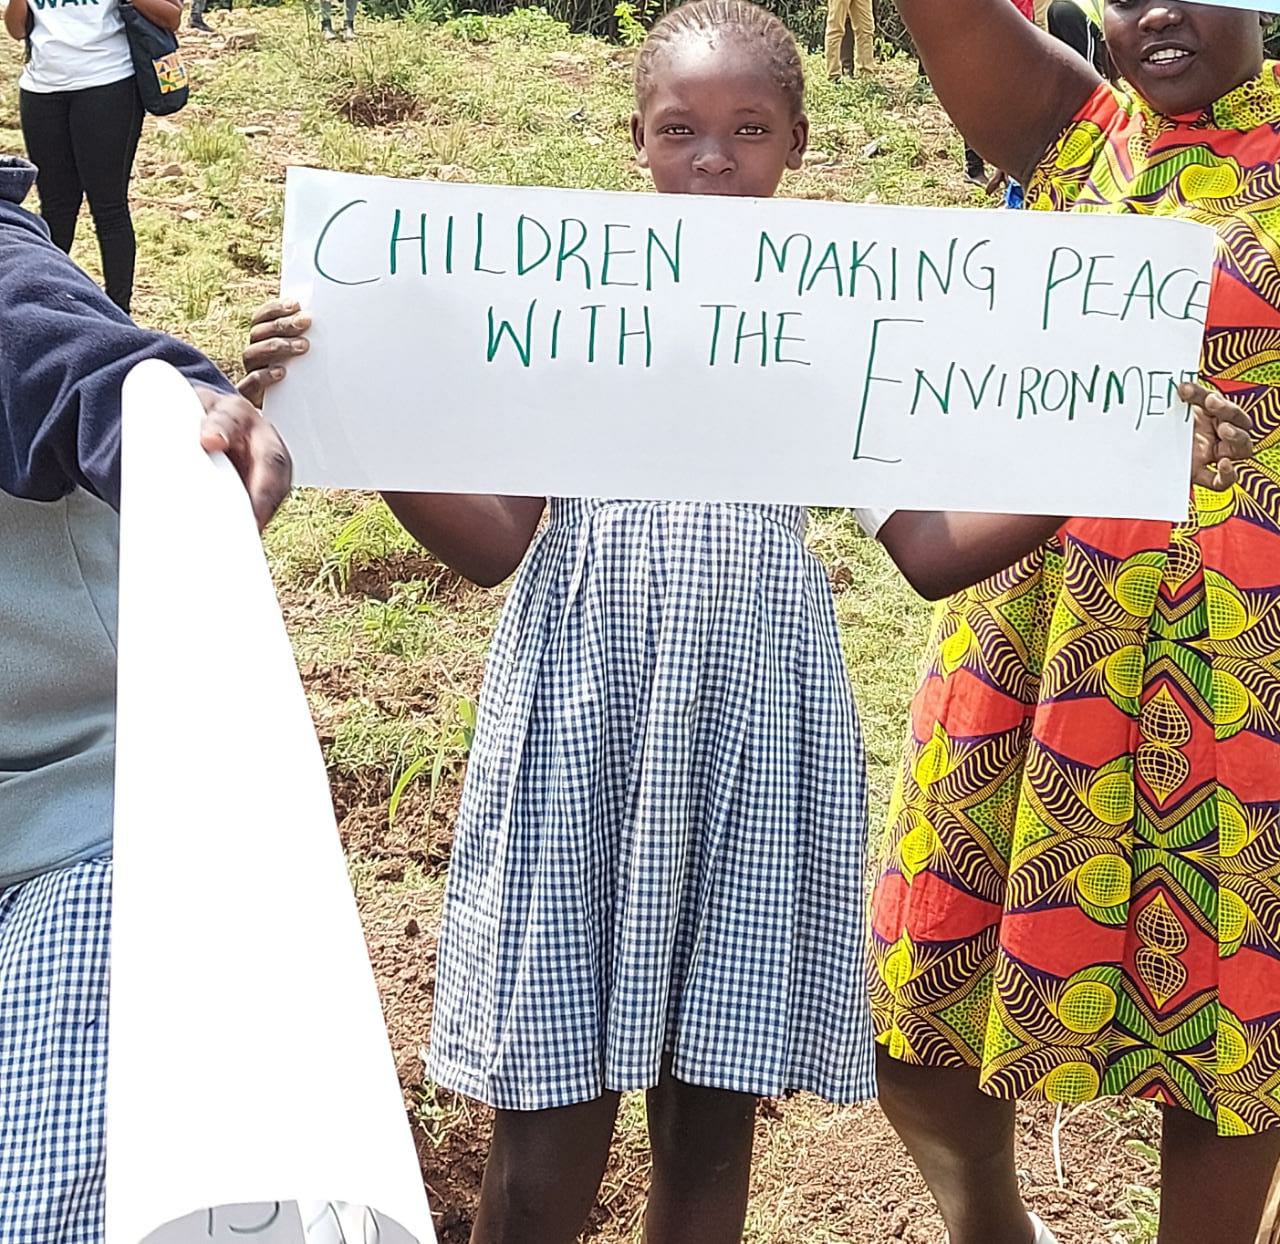 CHILDREN MAKING PEACE
WITH THE ENVIRONMENT
WAR